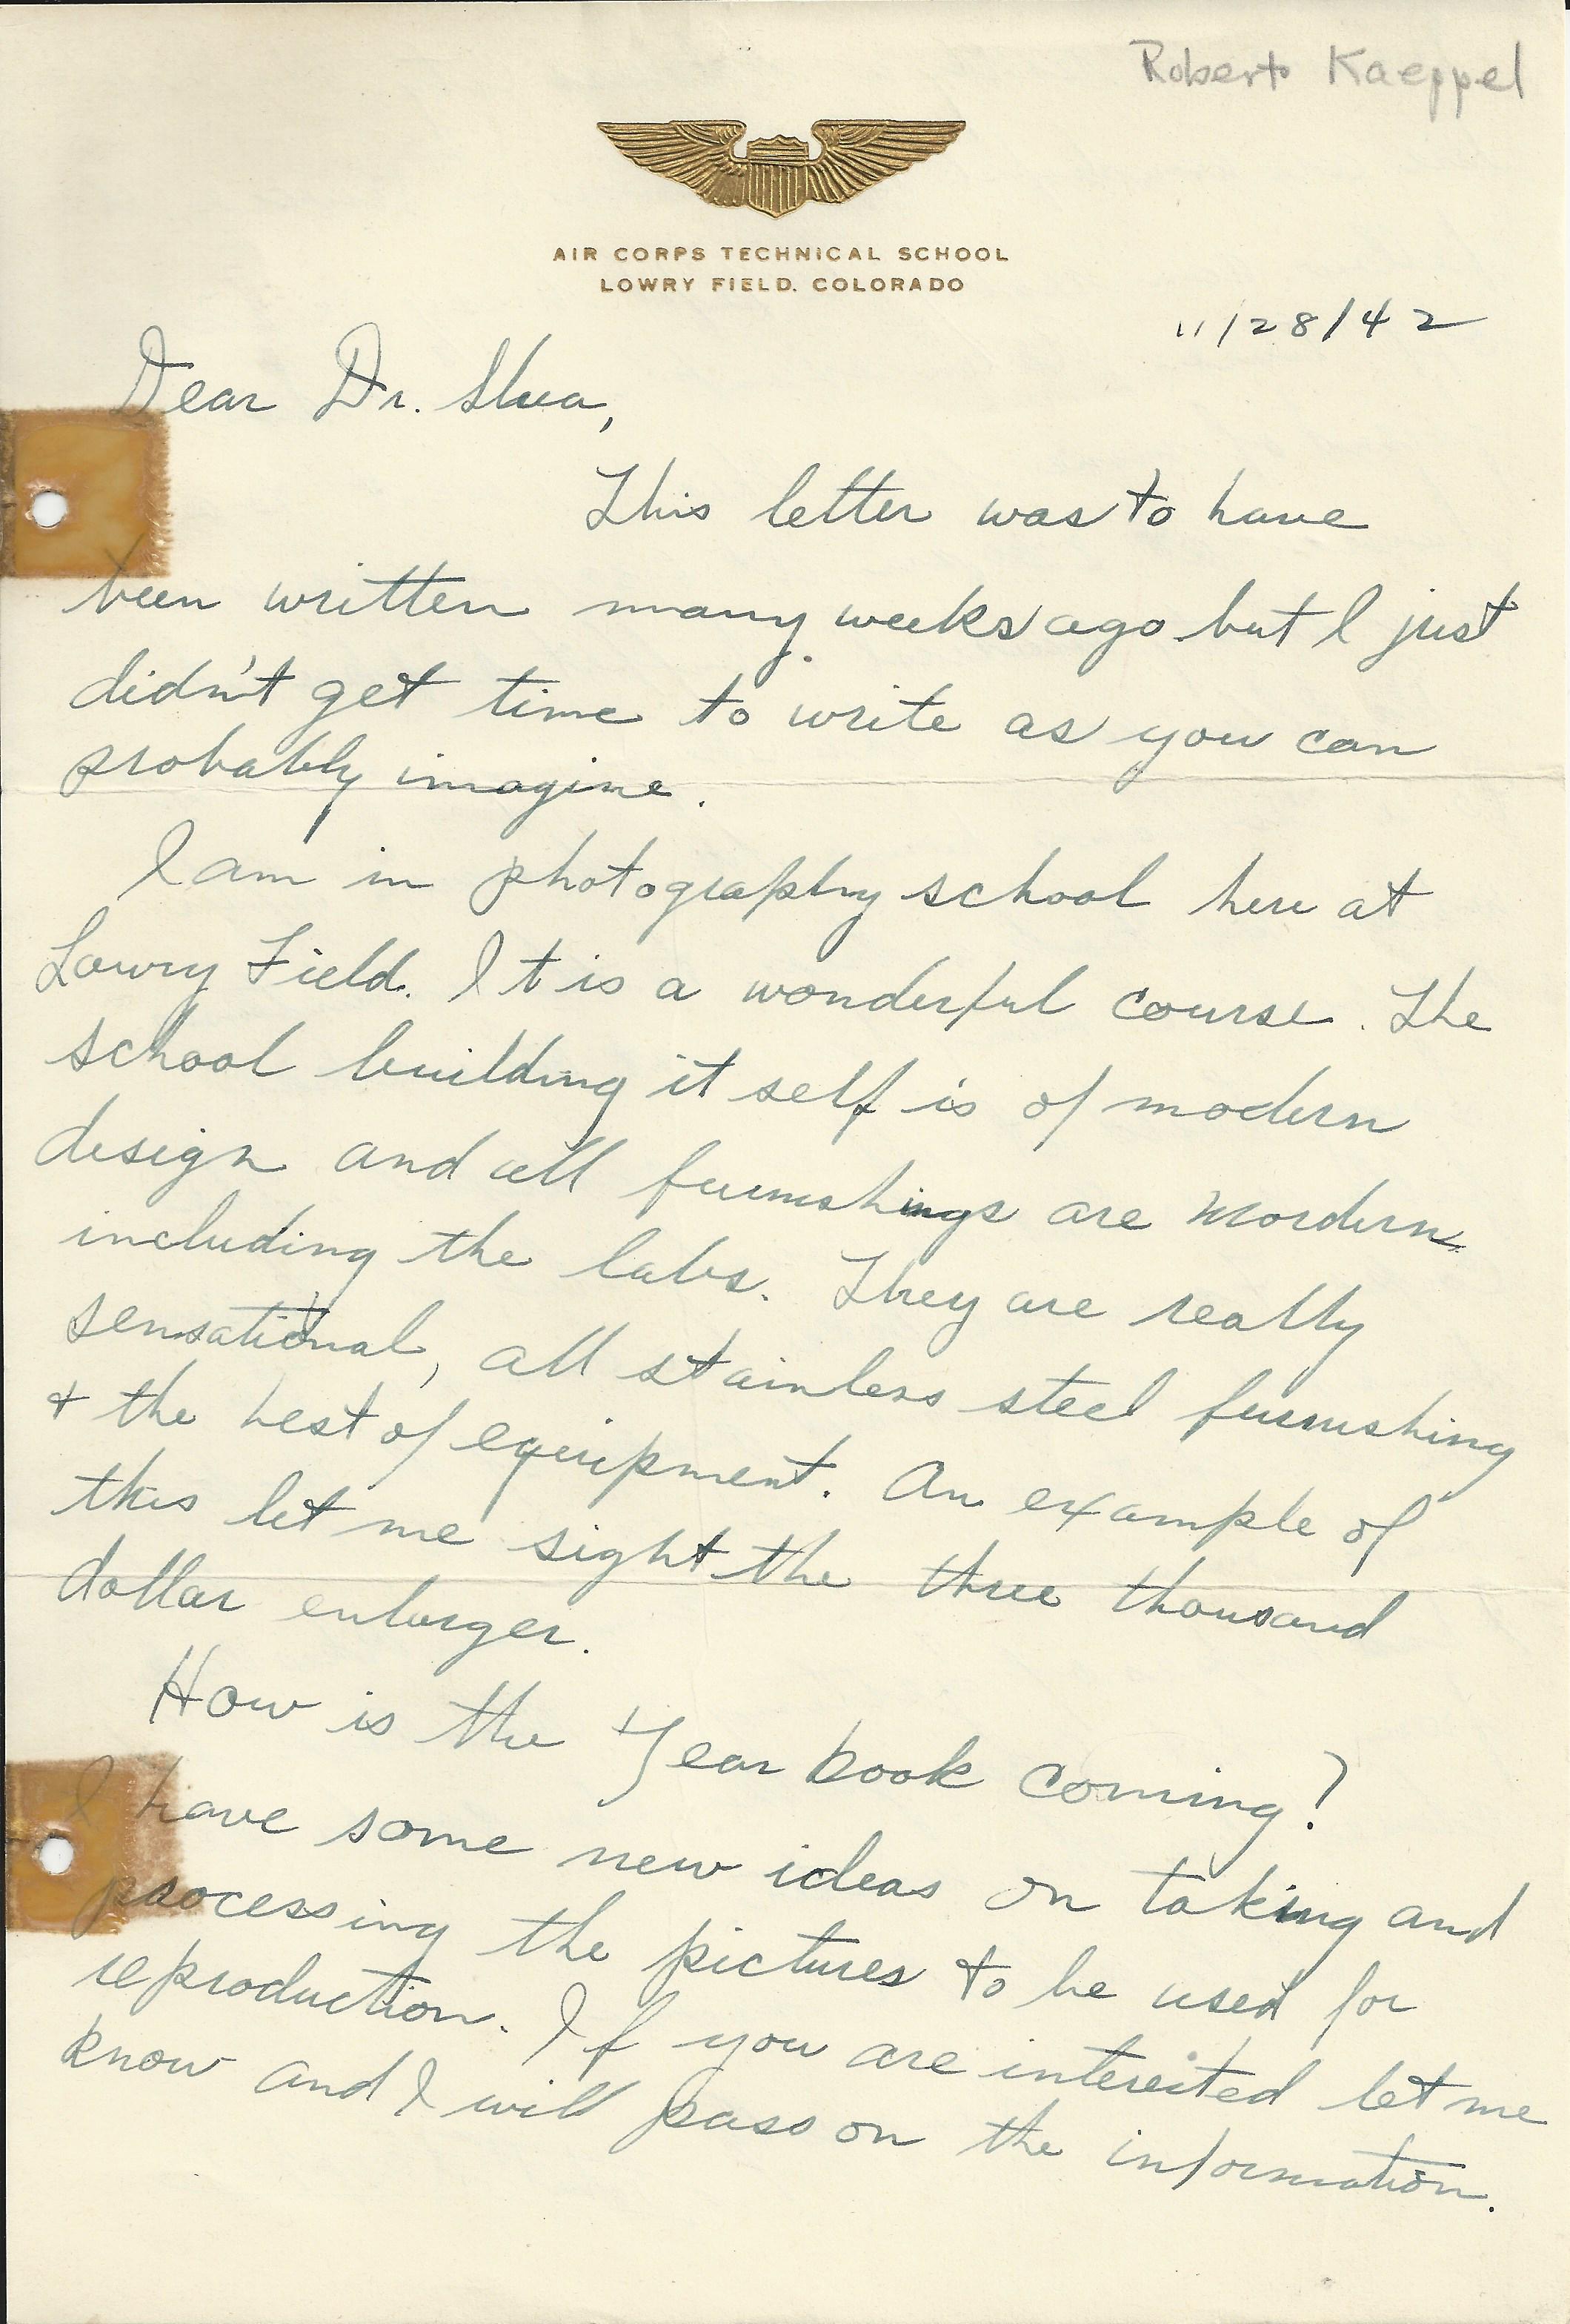 Robert Kaeppel
AIR CORPS TECHNICAL SCHOOL
LOWRY FIELD. COLORADO
11/28/42
Dear Dr. Shea,
This letter was to have
been written many weeks ago but I just
didn't get time to write as you can
probably imagine.
I am in photography school here at
Lowry Field. It is a wonderful course. The
school building it self is of modern
design and all furnishings are mordern
including the labs. They are really
sensational, all stainless steel furnishing
+ the best of equipment. An example of
this let me sight the three thousand
dollar enlarger.
How is the Year book coming?
I have some new ideas on taking and
processing the pictures to be used for
reproduction. If you are interested let me
know and I will pass on the information.